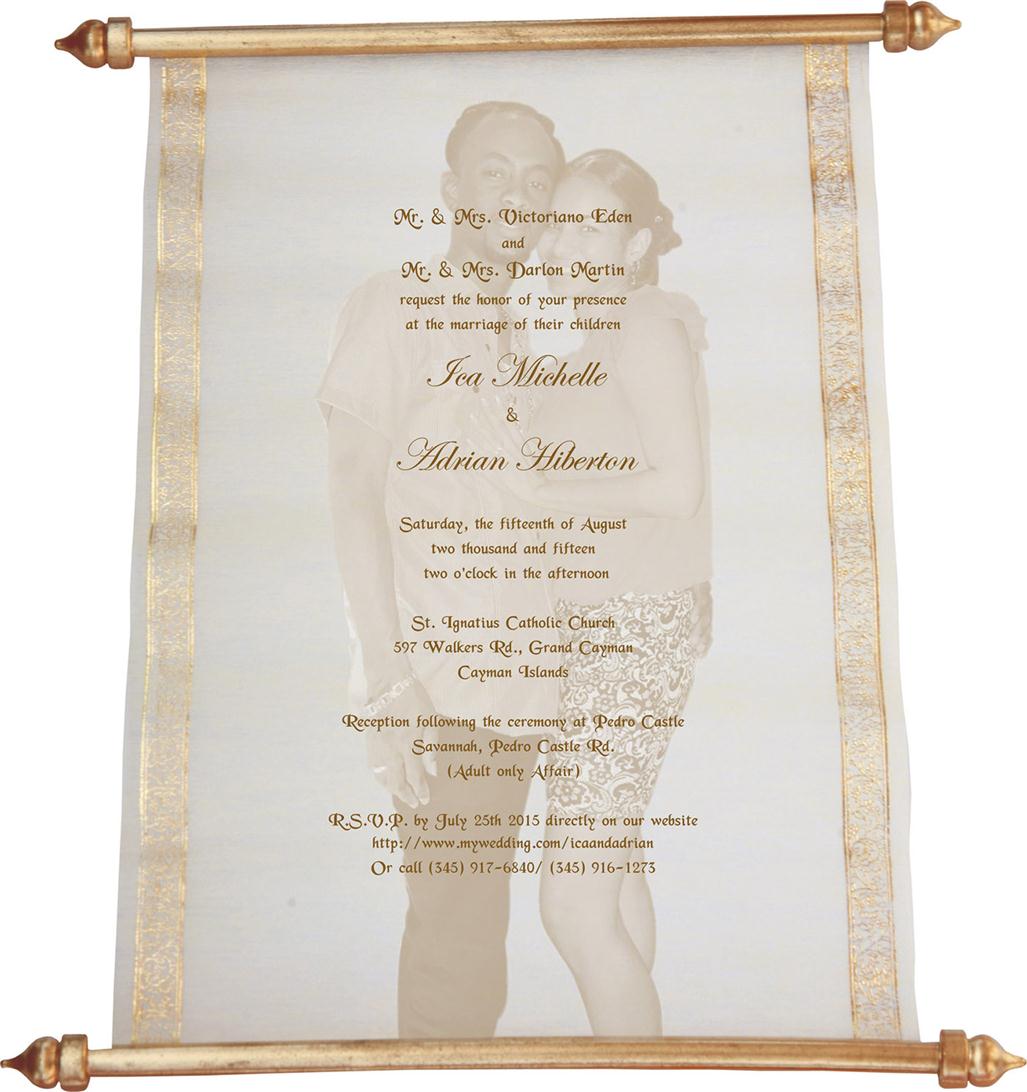 Mr. & Mrs. Victoriano Eden
and
Mr. & Mrs. Darlon Martin
request the honor of your presence
at the marriage of their children
Ica Michelle
&
Adrian Hiberton
Saturday, the fifteenth of August
two thousand and fifteen
two o'clock in the afternoon
St. Ignatius Catholic Church
597 Walkers Rd., Grand Cayman
Cayman Islands
Reception following the ceremony at Pedro Castle
Savannah, Pedro Castle Rd.
(Adult only Affair)
R.S.V.P. by July 25th 2015 directly on our website
http://www.mywedding.com/icaandadrian
Or call (345) 917-6840/ (345) 916-1273